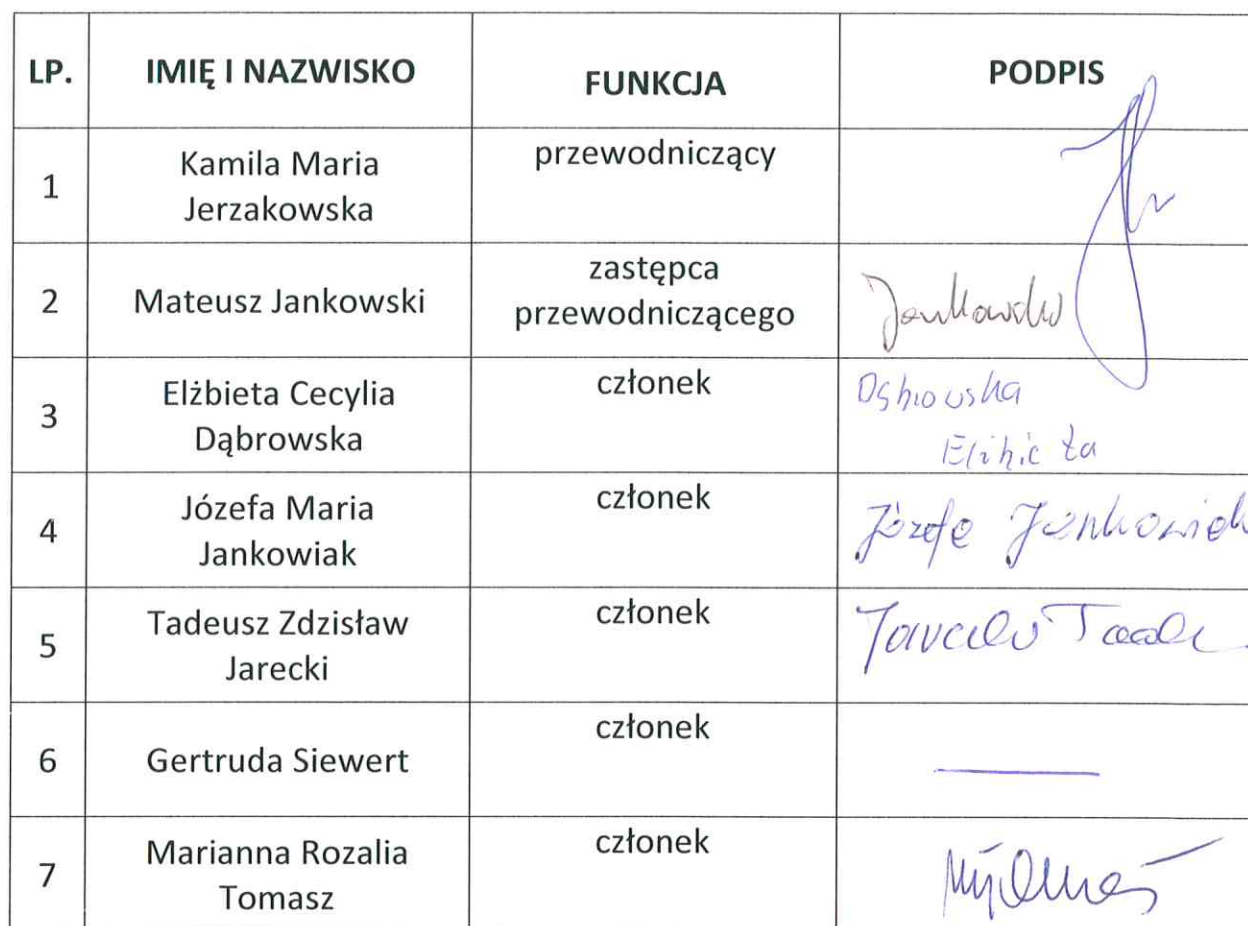 LP. IMIĘ I NAZWISKO FUNKCJA PODPIS
1 Kamila Maria Jerzakowska przewodniczący
2 Mateusz Jankowski zastępca przewodniczącego Jankowski
3 Elżbieta Cecylia Dąbrowska członek Dąbrowska
Elżbieta
4 Józefa Maria Jankowiak członek Józefa Jankowiak
5 Tadeusz Zdzisław Jarecki członek Jarecki
6 Gertruda Siewert członek
7 Marianna Rozalia Tomasz członek